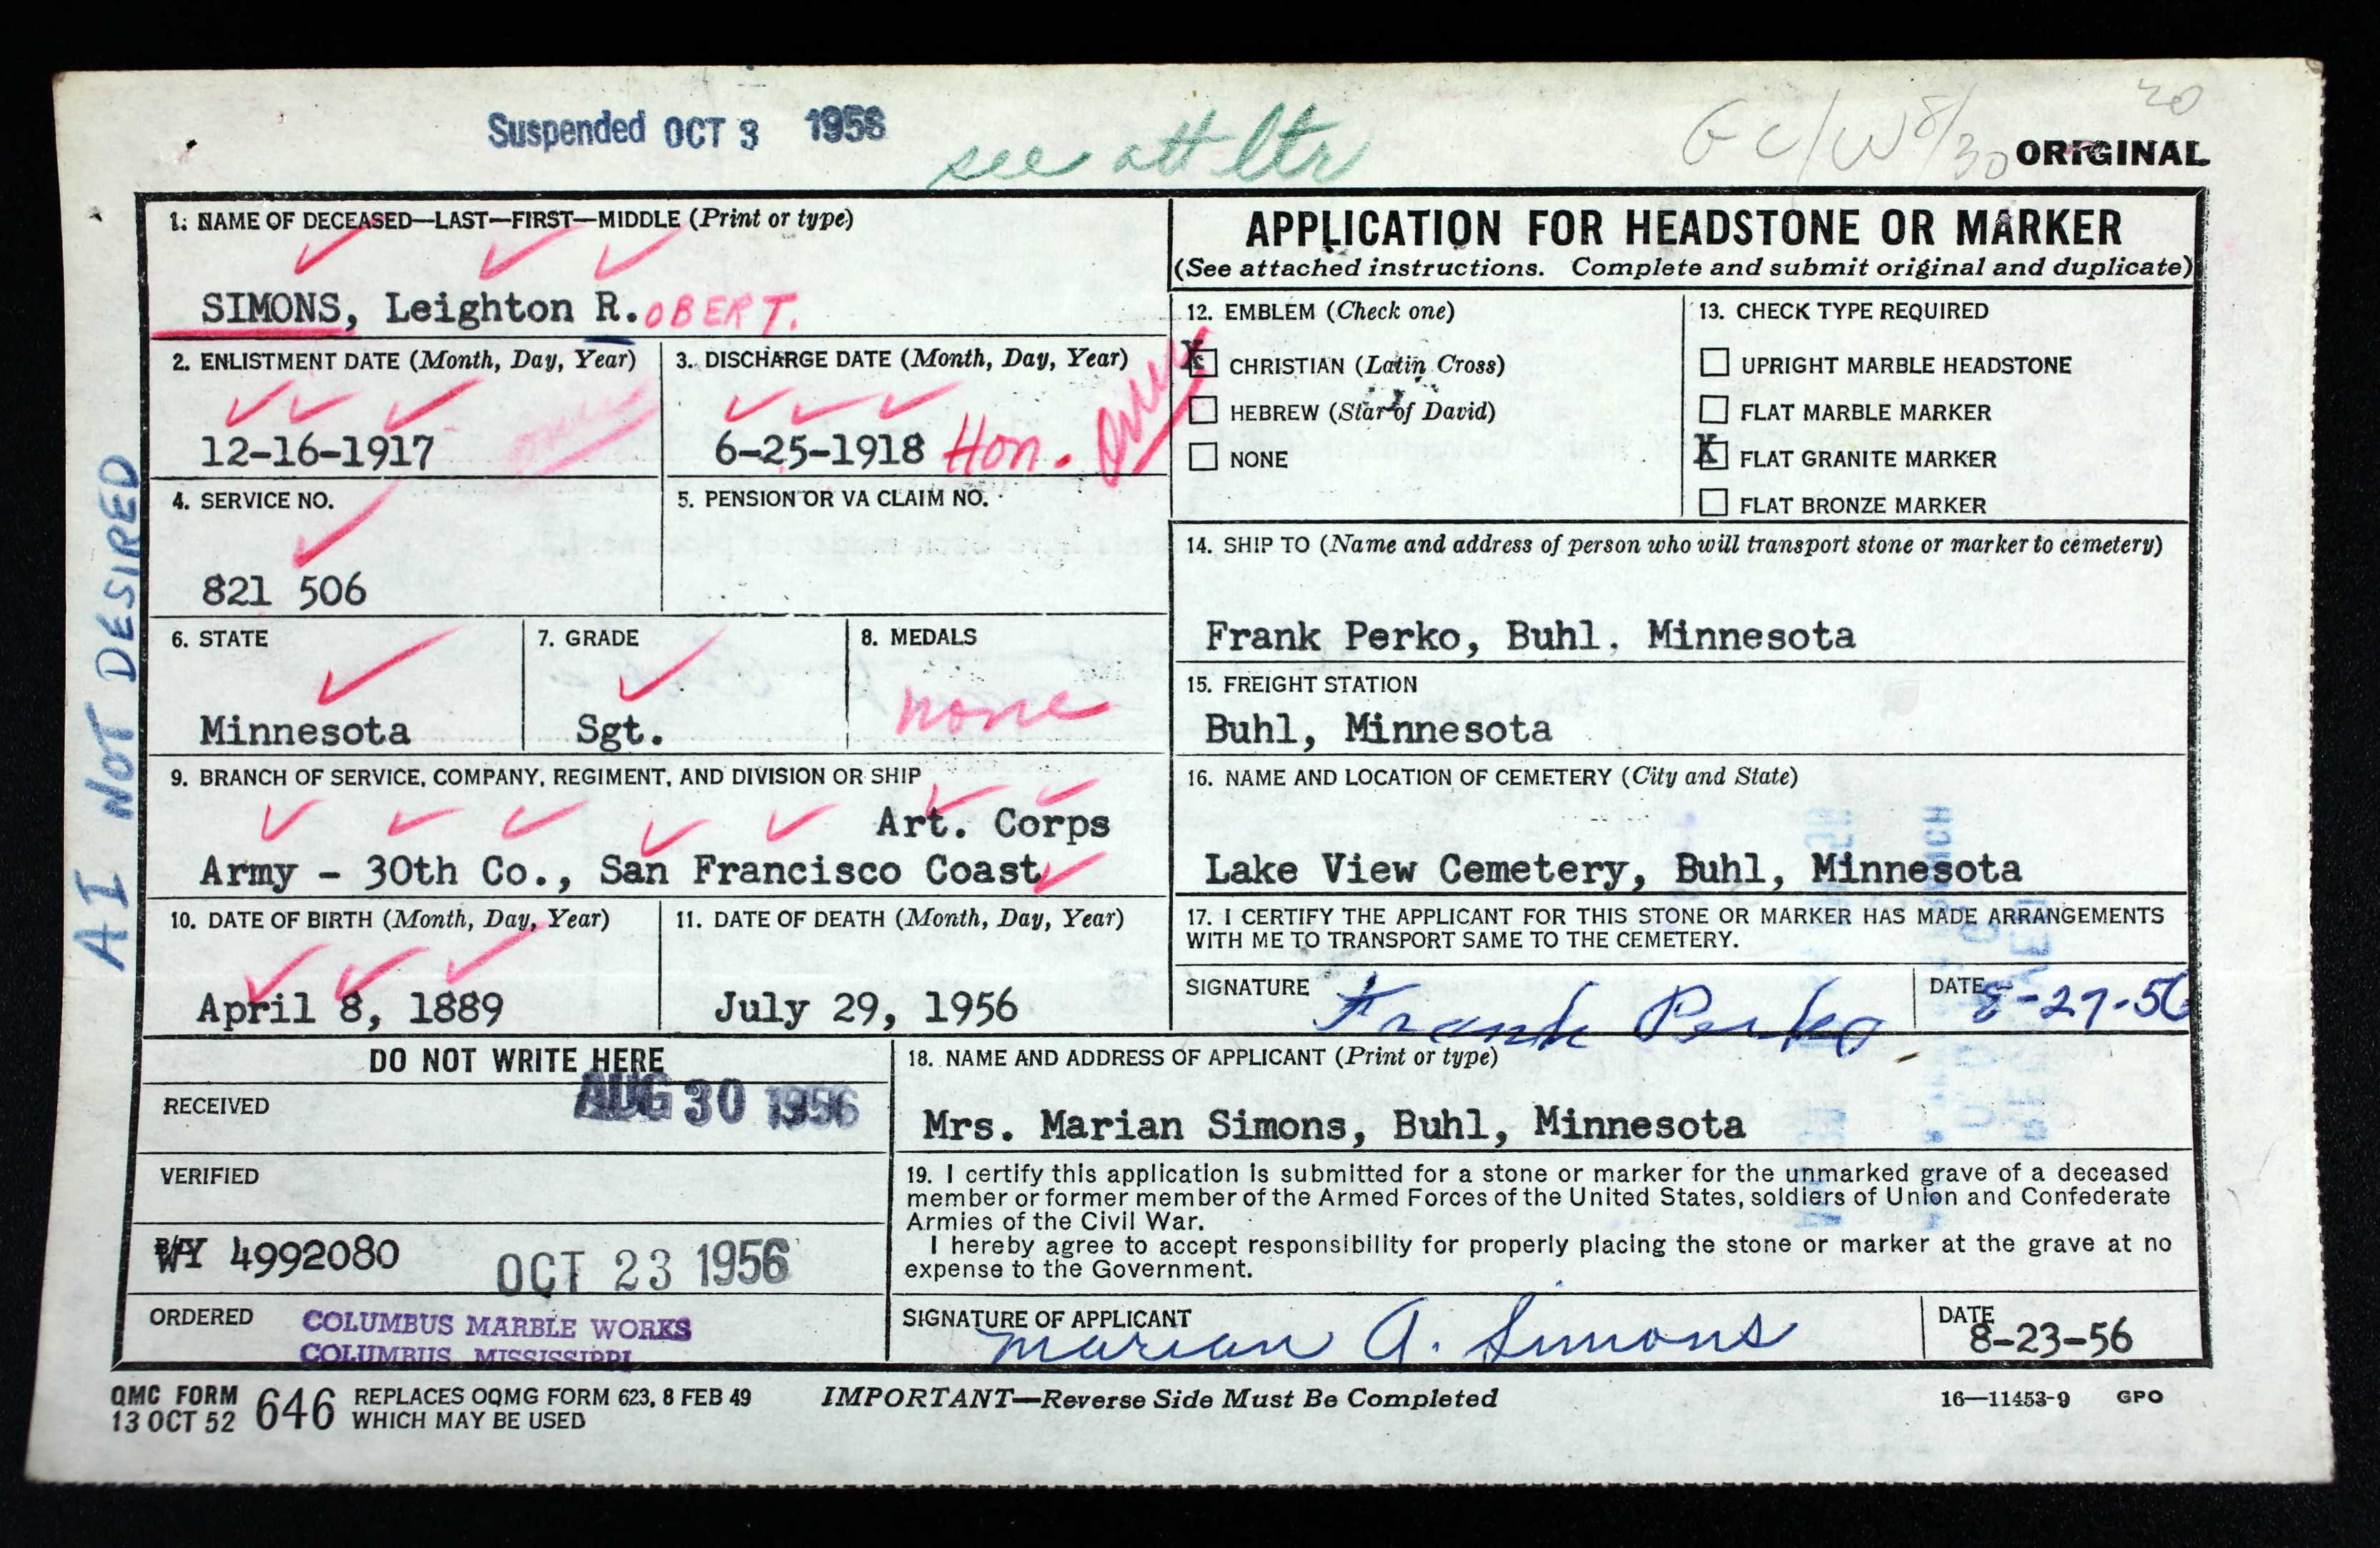 20
Suspended OCT 3 1956
see att ltr
GC/W 8/30
ORIGINAL
1. NAME OF DECEASED—LAST—FIRST—MIDDLE (Print or type)
SIMONS, Leighton R.OBERT.
2. ENLISTMENT DATE (Month, Day, Year)
12-16-1917
3. DISCHARGE DATE (Month, Day, Year)
6-25-1918 Hon.
4. SERVICE NO.
821 506
5. PENSION OR VA CLAIM NO.
6. STATE
Minnesota
7. GRADE
Sgt.
8. MEDALS
none
9. BRANCH OF SERVICE, COMPANY, REGIMENT, AND DIVISION OR SHIP
Art. Corps
Army - 30th Co., San Francisco Coast
10. DATE OF BIRTH (Month, Day, Year)
April 8, 1889
11. DATE OF DEATH (Month, Day, Year)
July 29, 1956
APPLICATION FOR HEADSTONE OR MARKER
(See attached instructions. Complete and submit original and duplicate)
12. EMBLEM (Check one)
X CHRISTIAN (Latin Cross)
HEBREW (Star of David)
NONE
13. CHECK TYPE REQUIRED
UPRIGHT MARBLE HEADSTONE
FLAT MARBLE MARKER
X FLAT GRANITE MARKER
FLAT BRONZE MARKER
14. SHIP TO (Name and address of person who will transport stone or marker to cemetery)
Frank Perko, Buhl, Minnesota
15. FREIGHT STATION
Buhl, Minnesota
16. NAME AND LOCATION OF CEMETERY (City and State)
Lake View Cemetery, Buhl, Minnesota
17. I CERTIFY THE APPLICANT FOR THIS STONE OR MARKER HAS MADE ARRANGEMENTS
WITH ME TO TRANSPORT SAME TO THE CEMETERY.
SIGNATURE Frank Perko
DATE 8-27-56
DO NOT WRITE HERE
RECEIVED AUG 30 1956
VERIFIED
4992080 OCT 23 1956
ORDERED COLUMBUS MARBLE WORKS
COLUMBUS, MISSISSIPPI
18. NAME AND ADDRESS OF APPLICANT (Print or type)
Mrs. Marian Simons, Buhl, Minnesota
19. I certify this application is submitted for a stone or marker for the unmarked grave of a deceased
member or former member of the Armed Forces of the United States, soldiers of Union and Confederate
Armies of the Civil War.
I hereby agree to accept responsibility for properly placing the stone or marker at the grave at no
expense to the Government.
SIGNATURE OF APPLICANT Marian A. Simons
DATE 8-23-56
QMC FORM 646 REPLACES OQMG FORM 623, 8 FEB 49
13 OCT 52 WHICH MAY BE USED
IMPORTANT—Reverse Side Must Be Completed
16—11453-9 GPO
AI NOT DESIRED